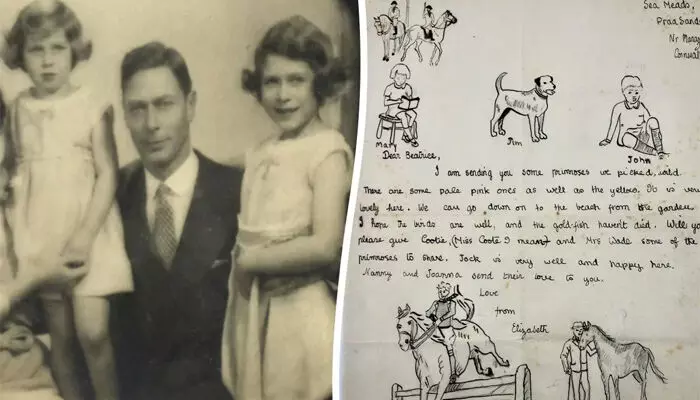 Sea Meads,
Praa Sands
Nr
Cornwall
Mary
Jim
John
Dear Beatrice,
I am sending you some primroses we picked,
There are some pale pink ones as well as the yellow. It is very
lovely here. We can go down on to the beach from the garden.
I hope the birds are well, and the gold-fish haven't died. Will you
please give Cootie, (Miss Coote I mean) and Mrs Wade some of the
primroses to share. Jock is very well and happy here.
Nanny and Joanna send their love to you.
Love
from
Elizabeth